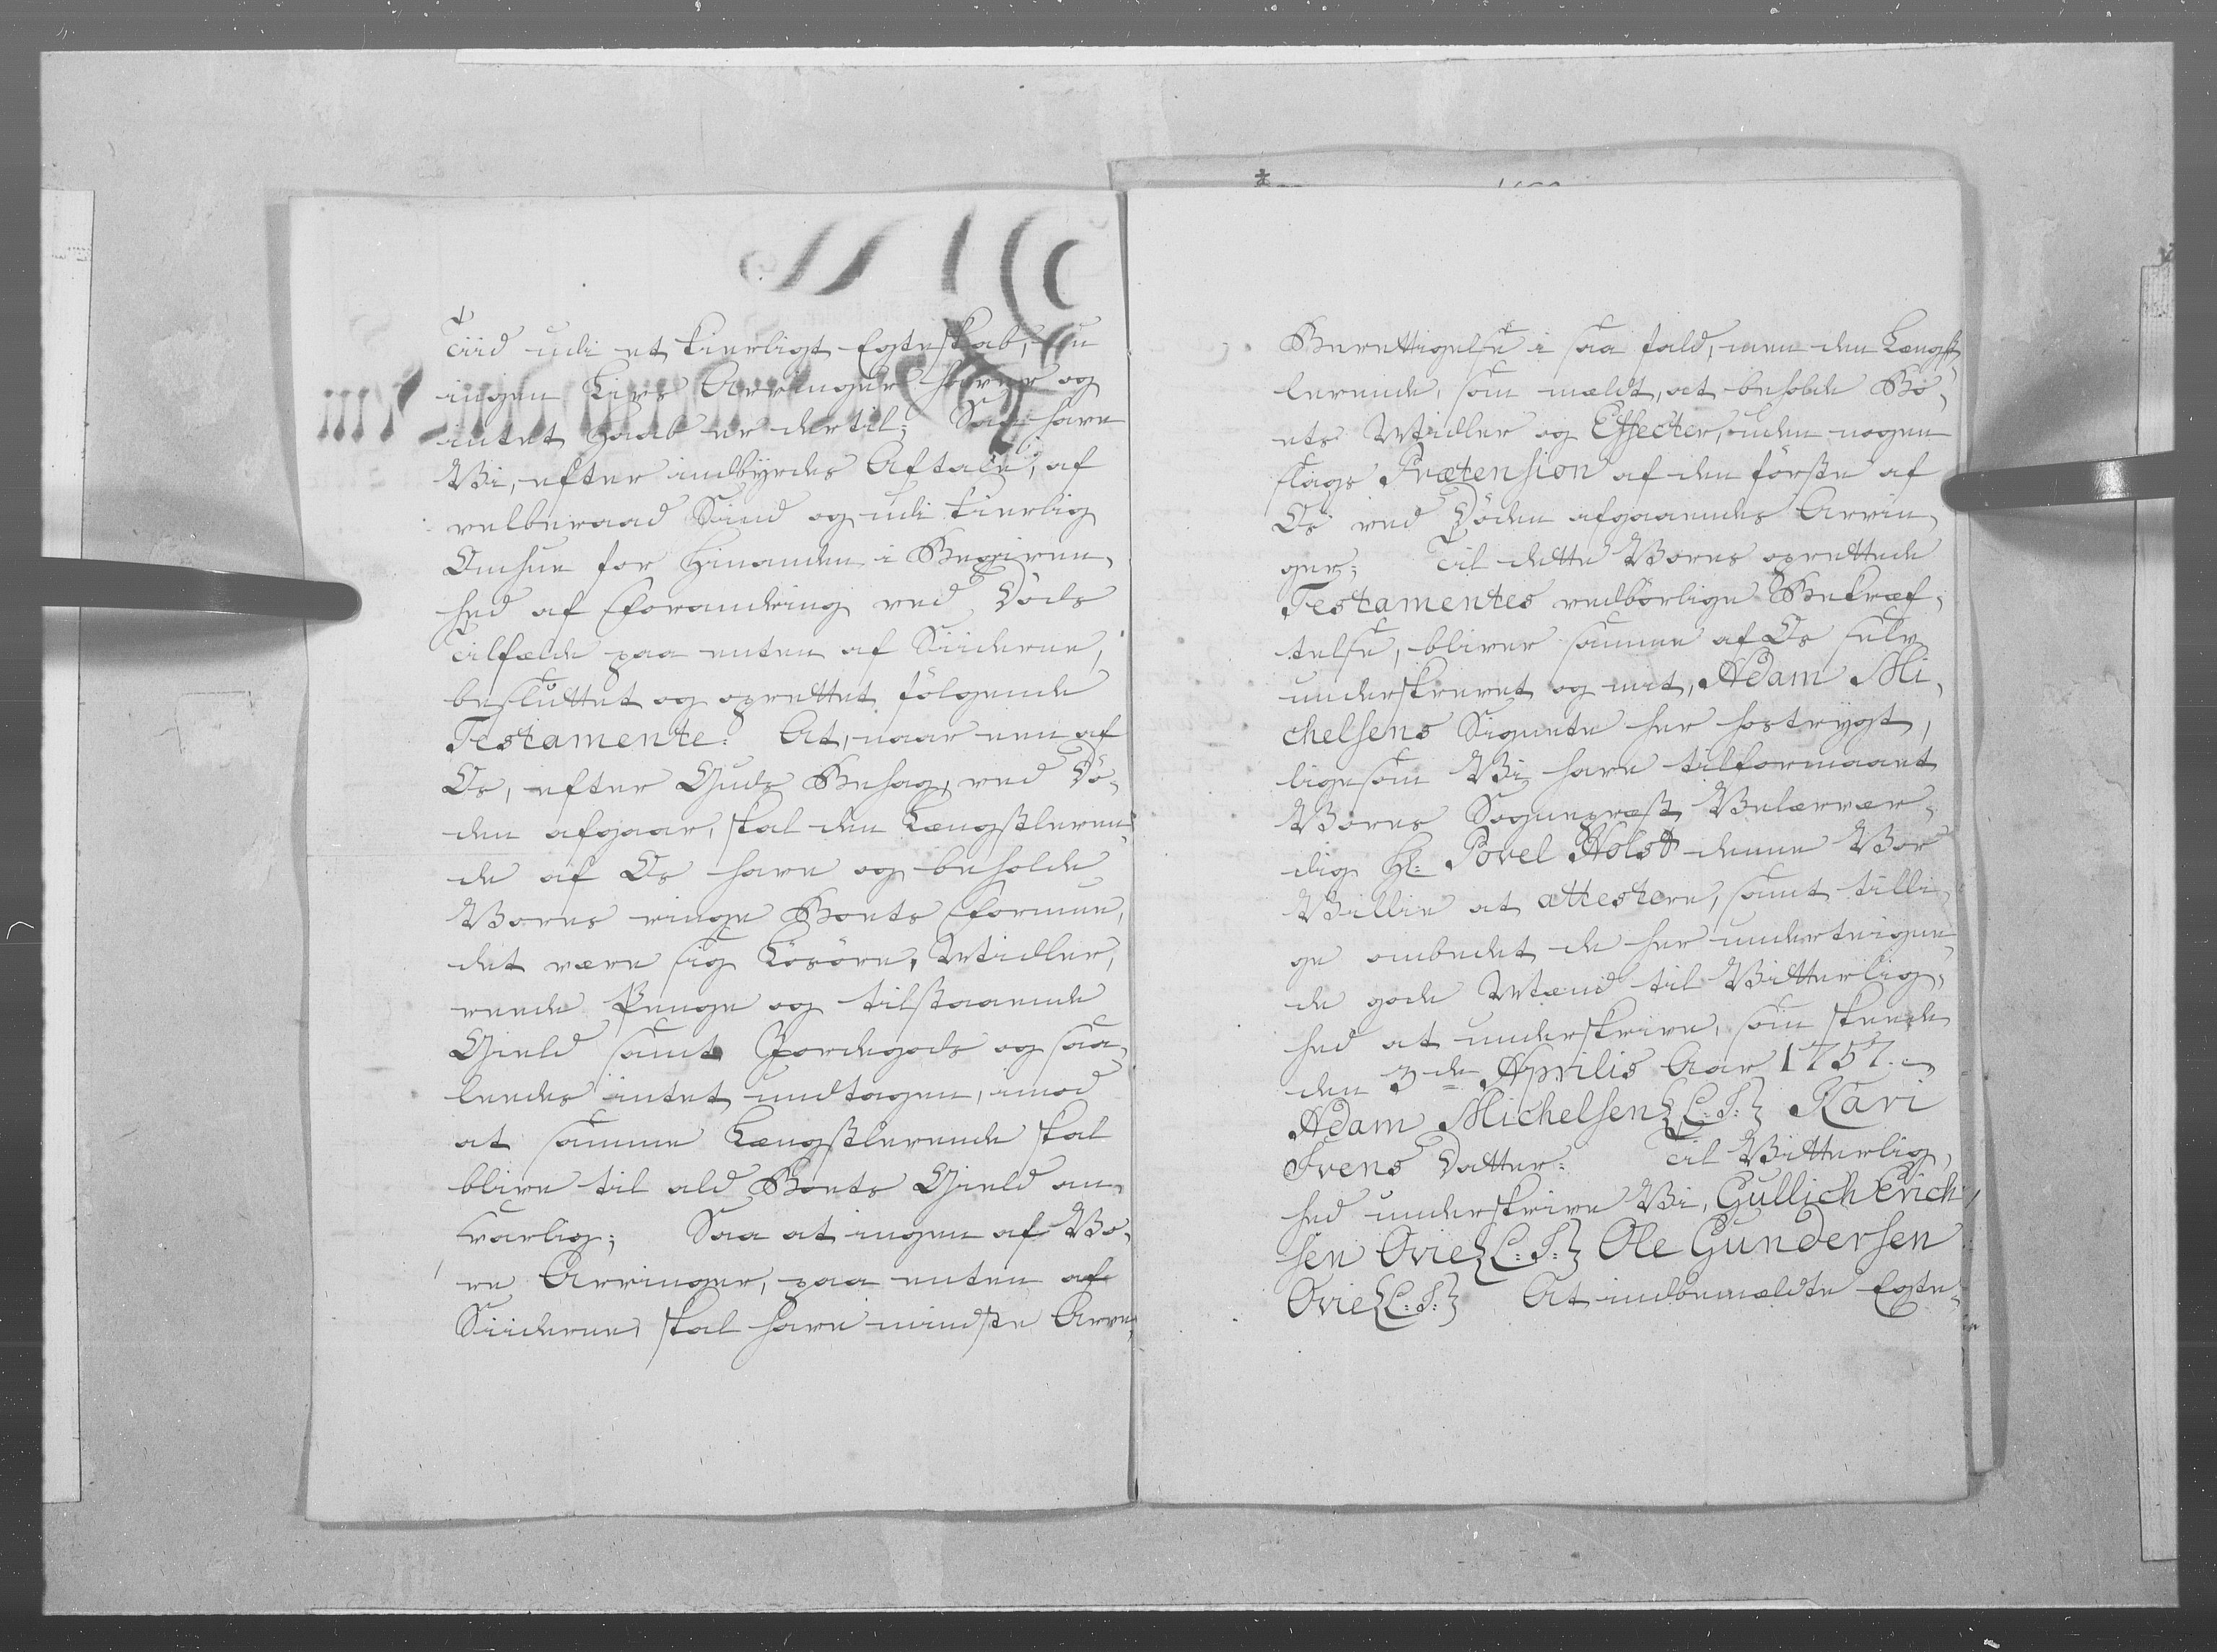 Tiid udi et kierligt Egteskab, nu
ingen Livs Arvinger haver og
intet Haab er dertil; Saa have
Vi, efter indbyrdes Aftale, af
velberaad Sind og udi kierlig
Omhue for Hinanden i Begiven-
hed af Forandring ved Döds
Tilfælde paa enten af Siiderne,
besluttet og oprettet fölgende
Testamente: At, naar een af
Os, efter Guds Behag, ved Dö-
den afgaar, skal den Længstleven-
de af Os have og beholde
Vores ringe Boets Formue,
det være sig Lösöre, Midler,
reede Penge og tilstaaende
Gield samt Jordegods og saa-
ledes intet undtagen, imod
at samme Længstlevende skal
blive til ald Boets Gield an-
svarlig; Saa at ingen af Vo-
re Arvinger, paa enten af
Siiderne, skal have mindste Arve-
Berettigelse i saa fald, men den Længst-
levende, som meldt, at beholde Bo-
ets Midler og Effecter, uden nogen
slags Prætension af den förste af
Os ved Döden afgaaendes Arvin-
ger; Til dette Vores oprettede
Testamentes vedbörlige Bekræf-
telse, bliver samme af Os selv
underskrevet og mit, Adam Mi-
chelsens Signete her hostrygt,
ligesom Vi have tilformaaet
Vores Sognepræst Velærvær-
dig Hr: Povel Holst denne Vor
Villie at attestere, samt tilli-
ge ombedet de her underteigne-
de gode Mænd til Vitterlig-
hed at underskrive, som skeede
den 3de Aprilis Aar 1757.
Adam Michelsen {L:S:} Kari
Ivens Datter. Til Vitterlig-
hed underskrive Vi, Gullich Erich-
sen Ovie {L:S:} Ole Gundersen
Ovie {L:S:} At indbemældte Egte-